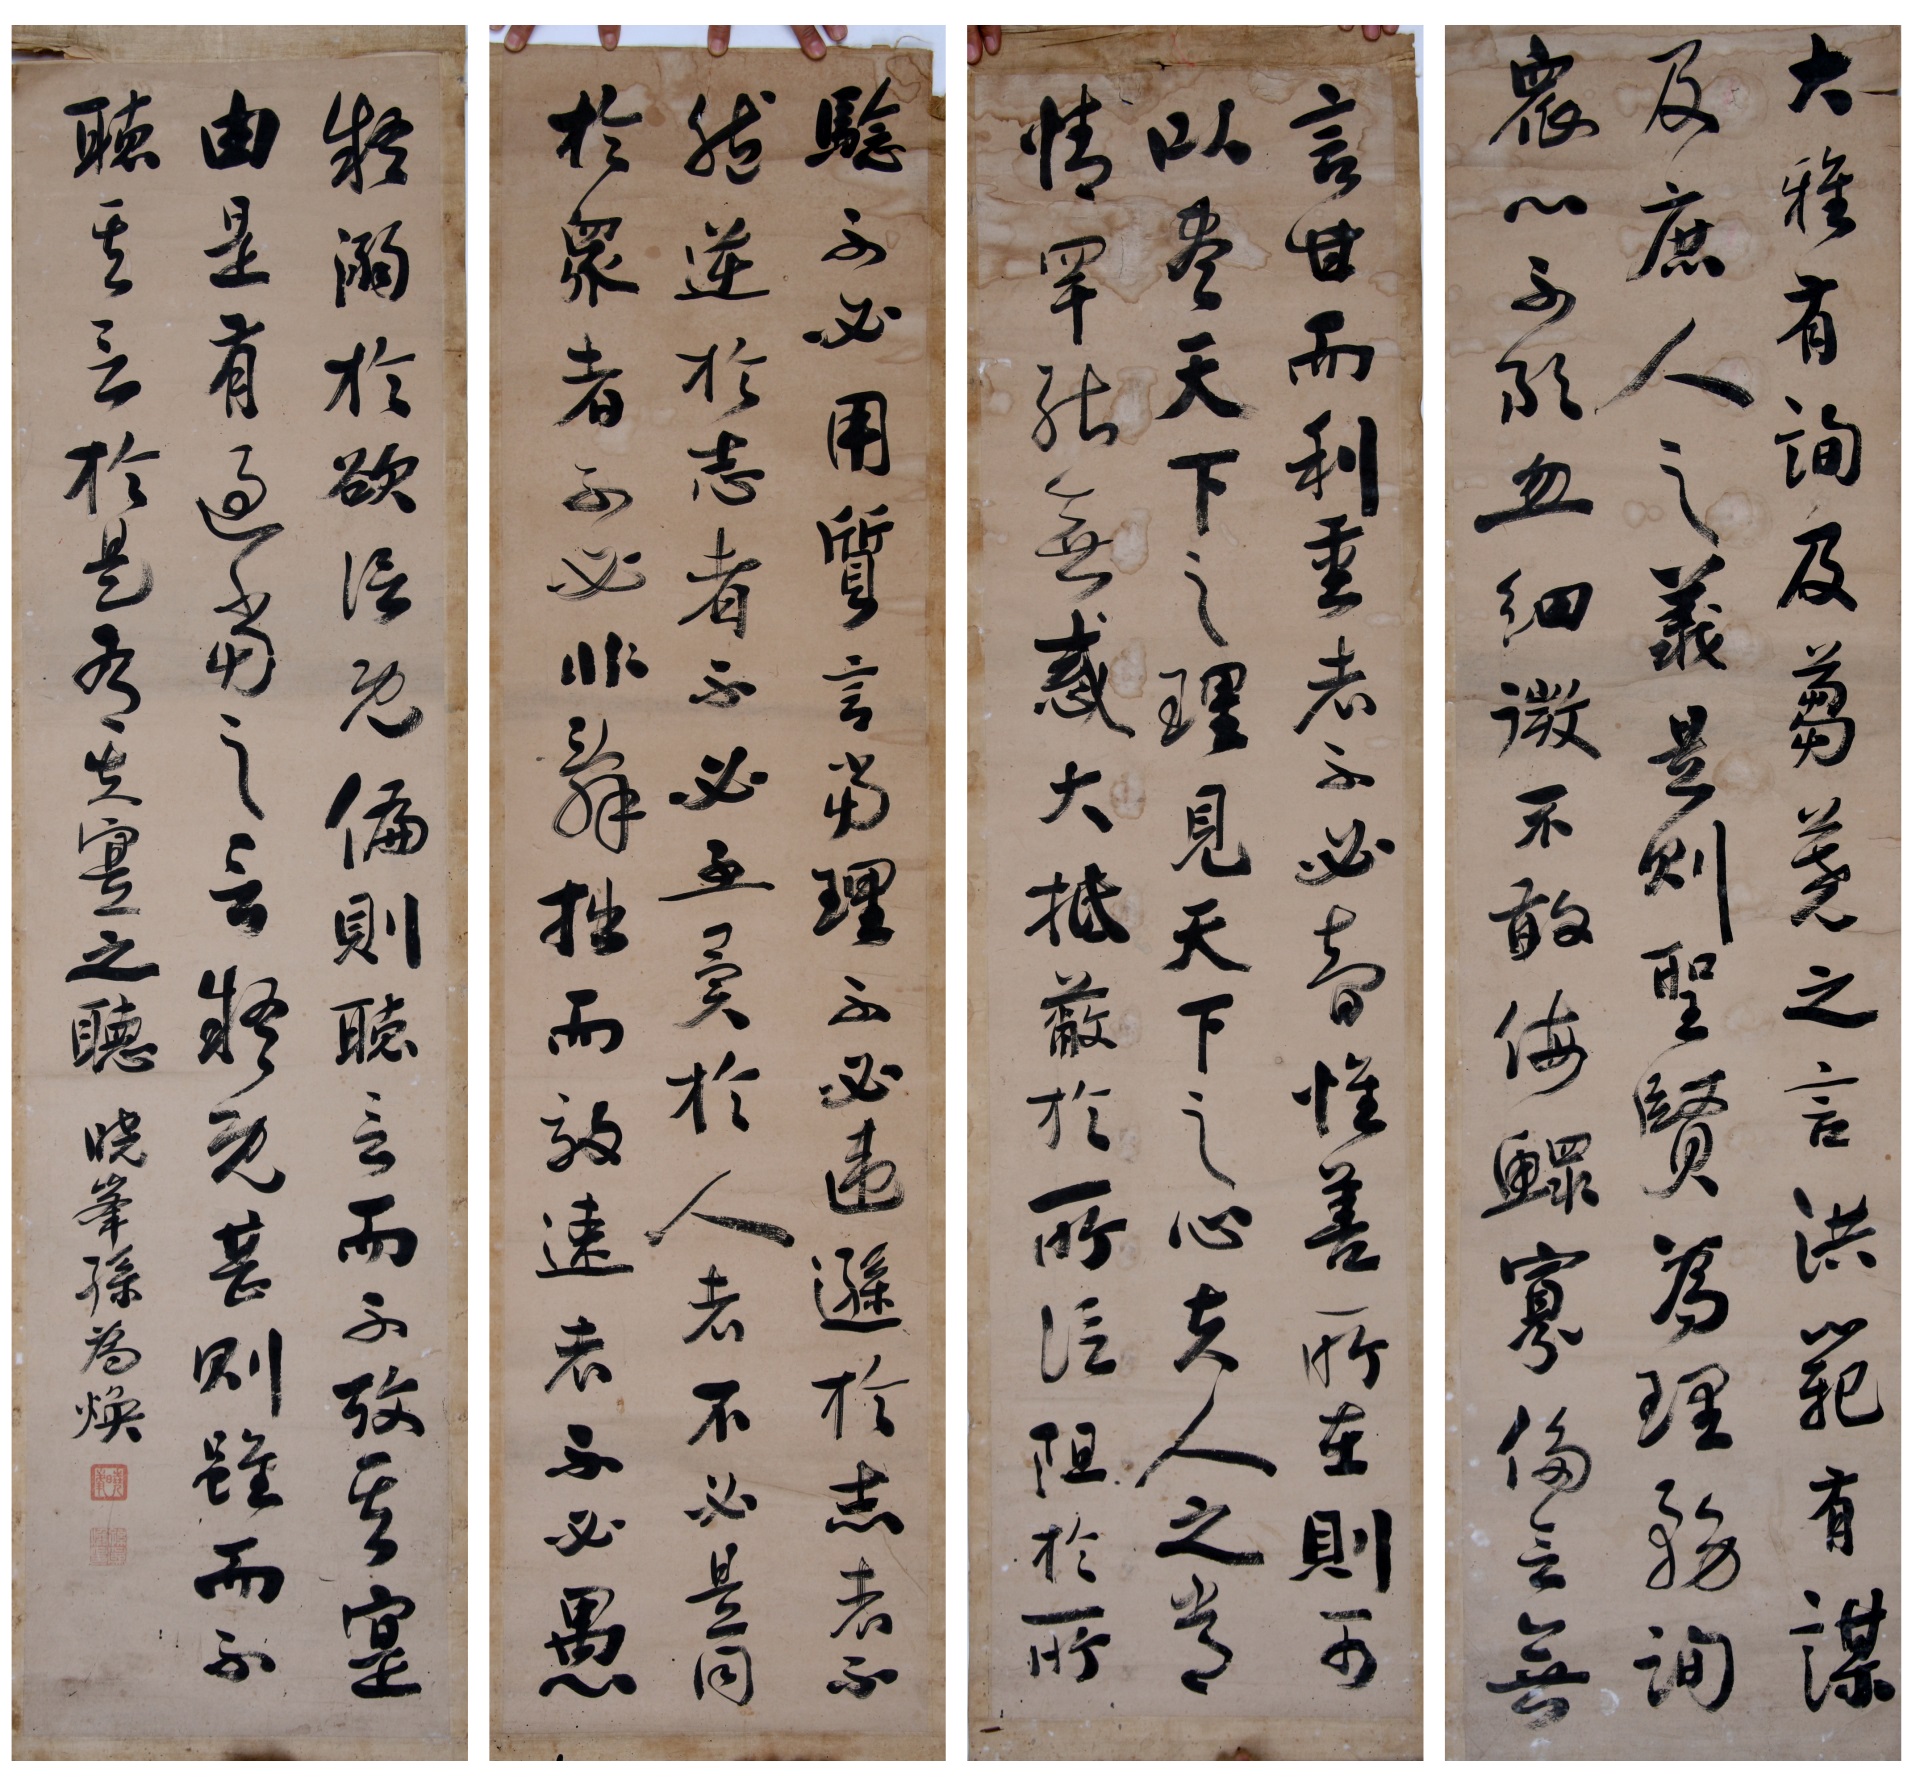 大雅有詢及芻蕘之言洪範有謀
及庶人之義是則聖賢為理務詢
眾心不敢忽細微不敢侮鰥寡侈言無
言甘而利重者不必智惟善所在則可
以盡天下之理見天下之心夫人之常
情罕能無惑大抵蔽於所信阻於所
驗不必用質言當理不必違遜於志者不
然逆於志者不必否異於人者不必是同
於眾者不必非辭拙而效速者不必愚
疑溺於欲信既偏則聽言而不考其實
由是有過當之言疑既甚則雖而不
聽其言於是有失實之聽 曉峯孫為煥